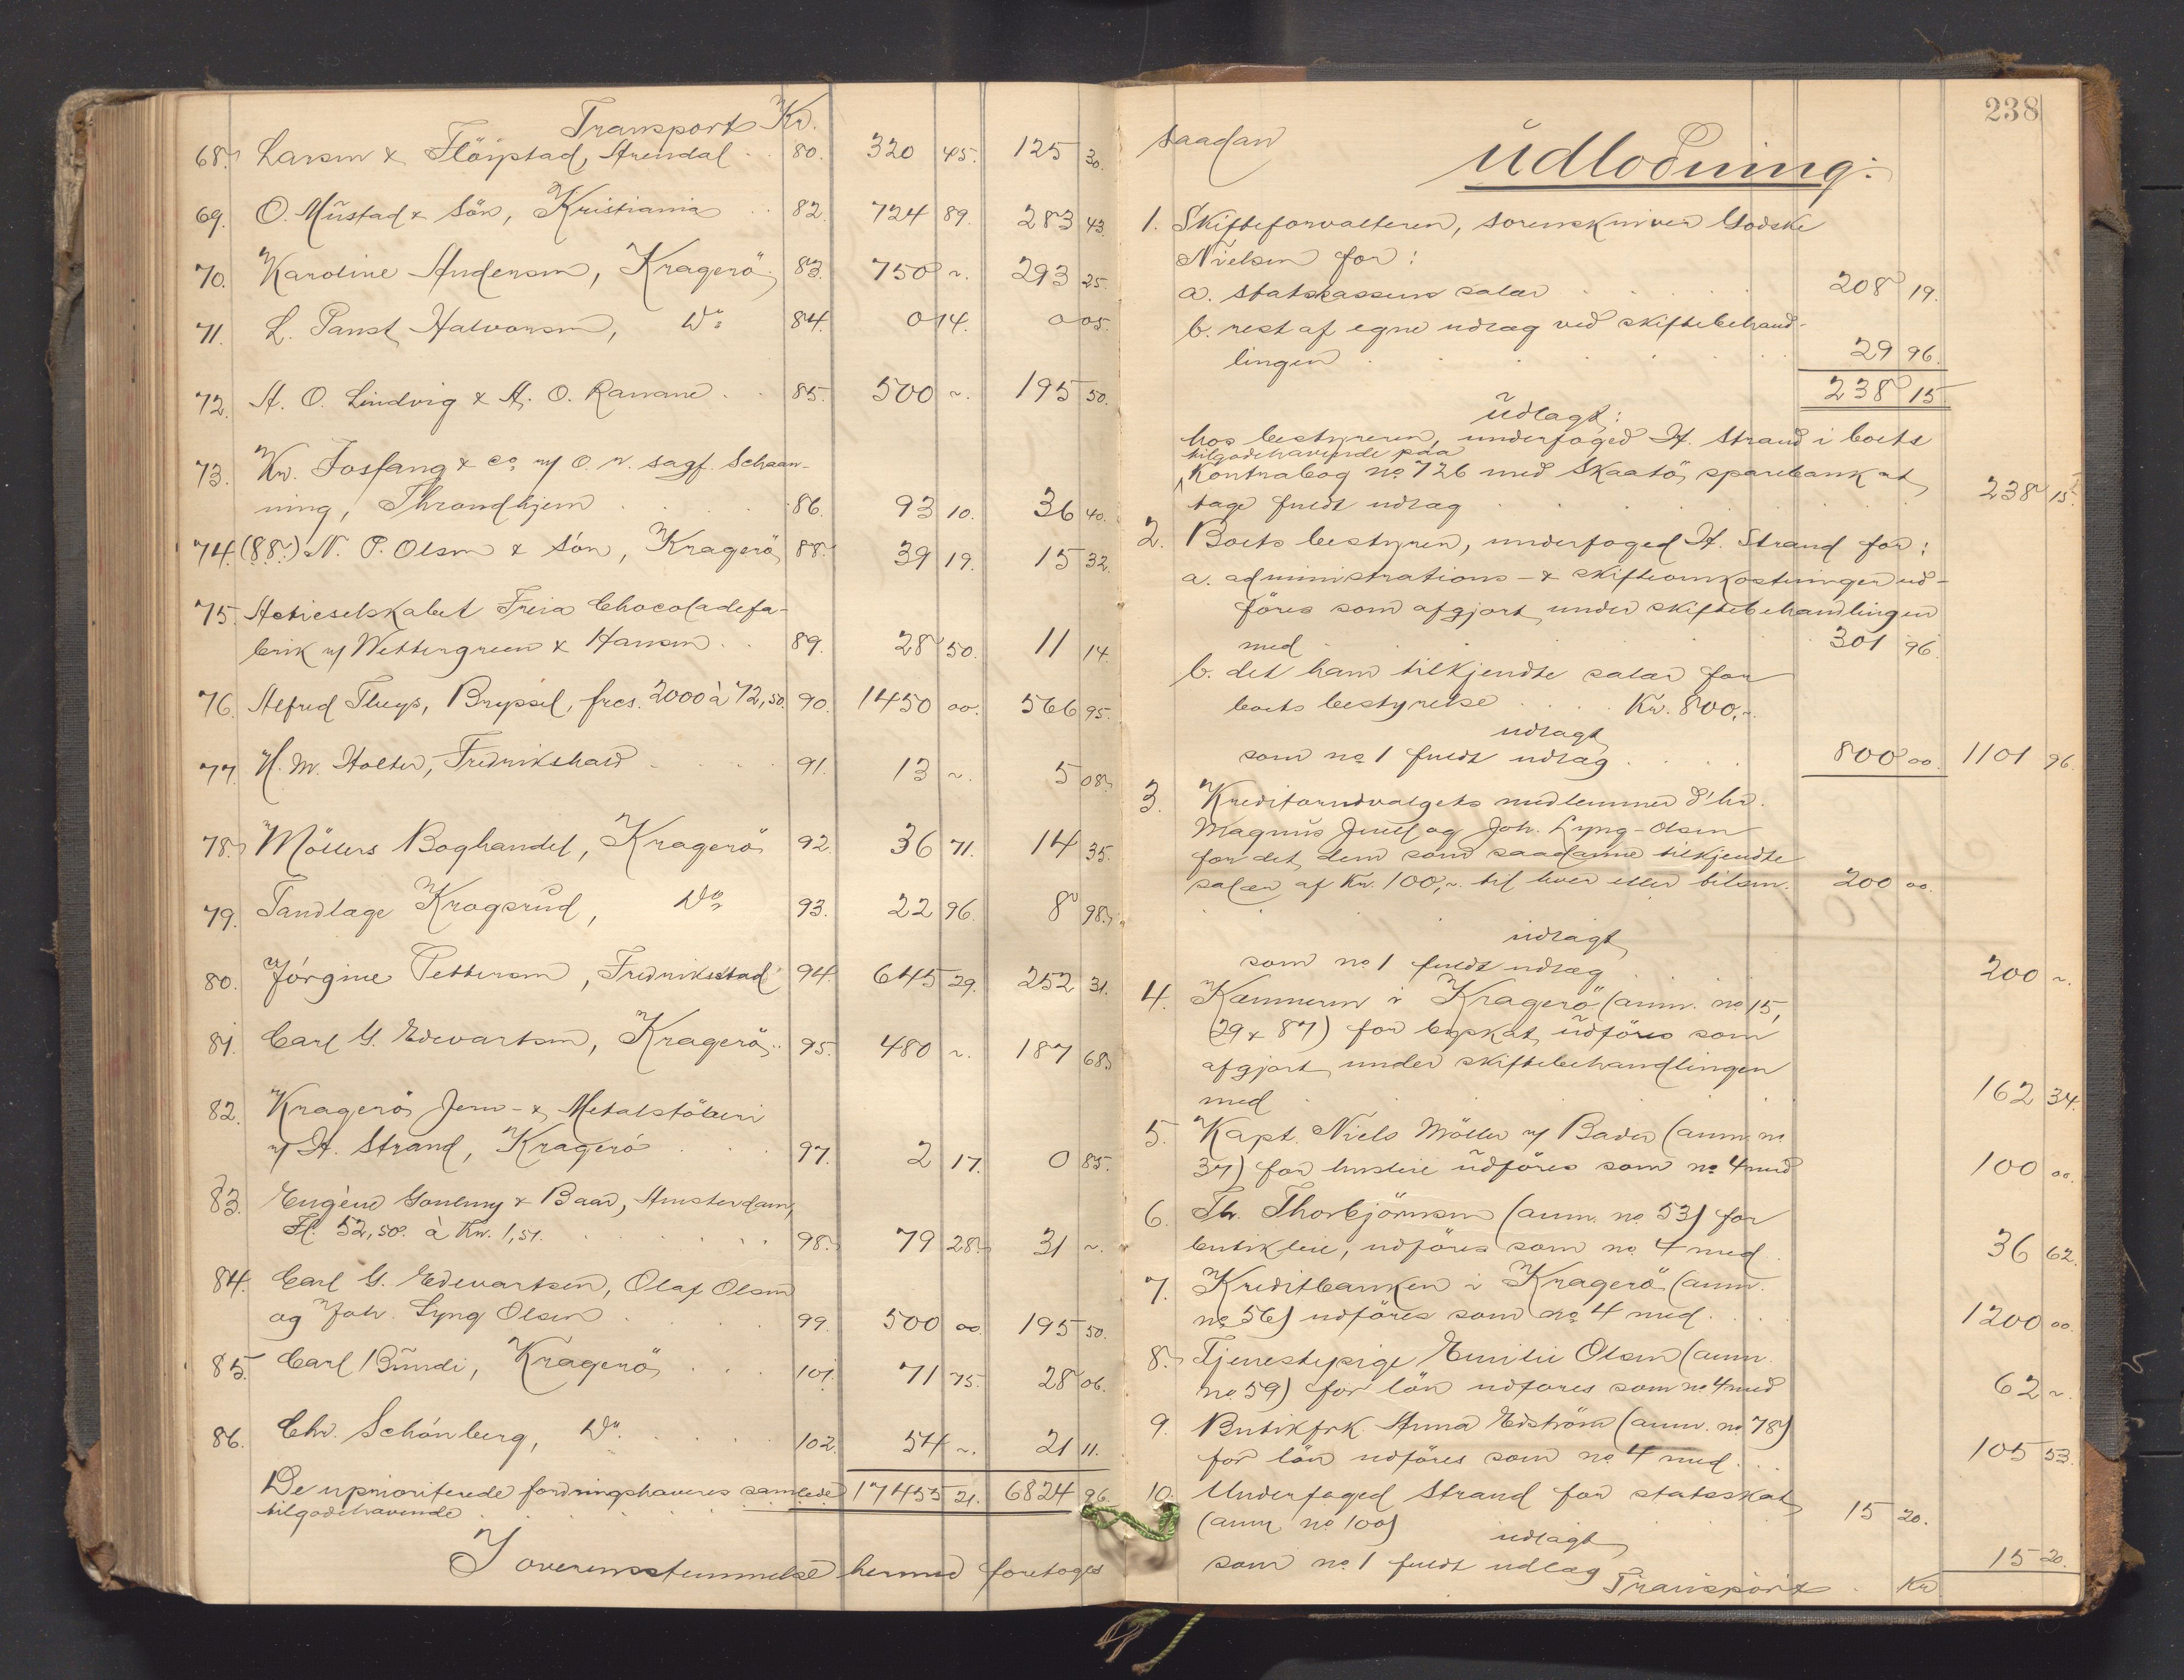 Transport Kr.
68. Larsen & Flöistad, Arendal . . 80. 320 45. 125 30.
69. O. Mustad & Sön, Kristiania . . 82. 724 89. 283 43.
70. Karoline Andersen, Kragerö. 83. 750 ~. 293 25.
71. L. Panst Halvorsen, Do 84. 0 14. 0 05.
72. A. O. Lindvig & A. O. Ravane . . 85. 500 ~. 195 50.
73. Kr. Fosfang & Co v/ O. r. sagf. Schaan-
ning, Throndhjem . . . 86. 93 10. 36 40.
74. (88.) N. P. Olsen & Sön, Kragerö 88. 39 19. 15 32.
75. Actieselskabet Freia Chocoladefa-
brik v/ Wettergreen & Hansen . . 89. 28 50. 11 14.
76. Alfred Thuys, Bryssel, frcs. 2000 à 72,50. 90. 1450 00. 566 95.
77. H. M. Holter, Fredrikshald . . . . 91. 13 ~. 5 08.
78. Möllers Boghandel, Kragerö 92. 36 71. 14 35.
79. Tandlæge Kragsrud, Do 93. 22 96. 8 98.
80. Jörgine Pettersen, Fredrikstad 94. 645 29. 252 31.
81. Carl G. Edvartsen, Kragerö . . 95. 480 ~. 187 68.
82. Kragerö Jern- & Metalstöberi
v/ H. Strand, Kragerö . . . 97. 2 17. 0 85.
83. Eugène Goulmy & Baar, Amsterdam,
Fl. 52,50. à Kr. 1,51. . . . . . 98. 79 28. 31 ~.
84. Carl G. Edevartsen, Olaf Olsen
og Joh. Lyng Olsen . . . . 99. 500 00. 195 50.
85. Carl Bundi, Kragerö . . . 101. 71 75. 28 06.
86. Chr. Schönberg, Do. . . . . 102. 54 ~. 21 11.
De uprioriterede fordringshaveres samlede 17455 21. 6824 96.
tilgodehavende . . . . . .
I overensstemmelse hermed foretoges
238
saadan
Udlodning:
1. Skifteforvalteren, sorenskriver Godske
Nielsen for:
a. statskassens salær . . . . . 208 19.
b. rest af egne udlæg ved skiftebehand-
lingen . . . . . . . . 29 96.
238 15.
Udlagt:
hos bestyreren, underfoged H. Strand i boets
tilgodehavende paa
Kontrabog no 726 med Skaatö sparebank at
tage fuldt udlæg . . . . . . 238 15.
2. Boets bestyrer, underfoged H. Strand for:
a. administrations- & skifteomkostninger ud-
föres som afgjort under skiftebehandlingen
med . . . . . . . . 301 96.
b. det ham tilkjendte salær for
boets bestyrelse . . . . Kr. 800,~.
udlagt
som no 1 fuldt udlæg . . . . 800 00. 1101 96.
3. Kreditorudvalgets medlemmer d'hr.
Magnus Juell og Joh. Lyng-Olsen
for det dem som saadanne tilkjendte
salær af Kr. 100,~. til hver eller tilsm. 200 00.
udlagt
som no 1 fuldt udlæg . . . . 200 ~.
4. Kæmneren i Kragerö (anm. no 15,
29 & 87) for byskat, udföres som
afgjort under skiftebehandlingen
med . . . . . . . . 162 34.
5. Kapt. Niels Möller v/ Bader (anm. no
37) for husleie udföres som no 4 med 100 00.
6. Th. Thorbjörnsen (anm. no 53) for
butikleie, udföres som no 4 med . 36 62.
7. Kreditbanken i Kragerö (anm.
no 56) udföres som no 4 med . . . 1200 00.
8. Tjenestepige Emilie Olsen (anm.
no 59) for lön udföres som no 4 med 62 ~.
9. Butikfrk. Anna Edström (anm. no 78)
for lön udföres som no 4 med . . . 105 53.
10. Underfoged Strand for statsskat
(anm no 100) 15 20.
udlagt
som no 1 fuldt udlæg 15 20.
Transport . Kr